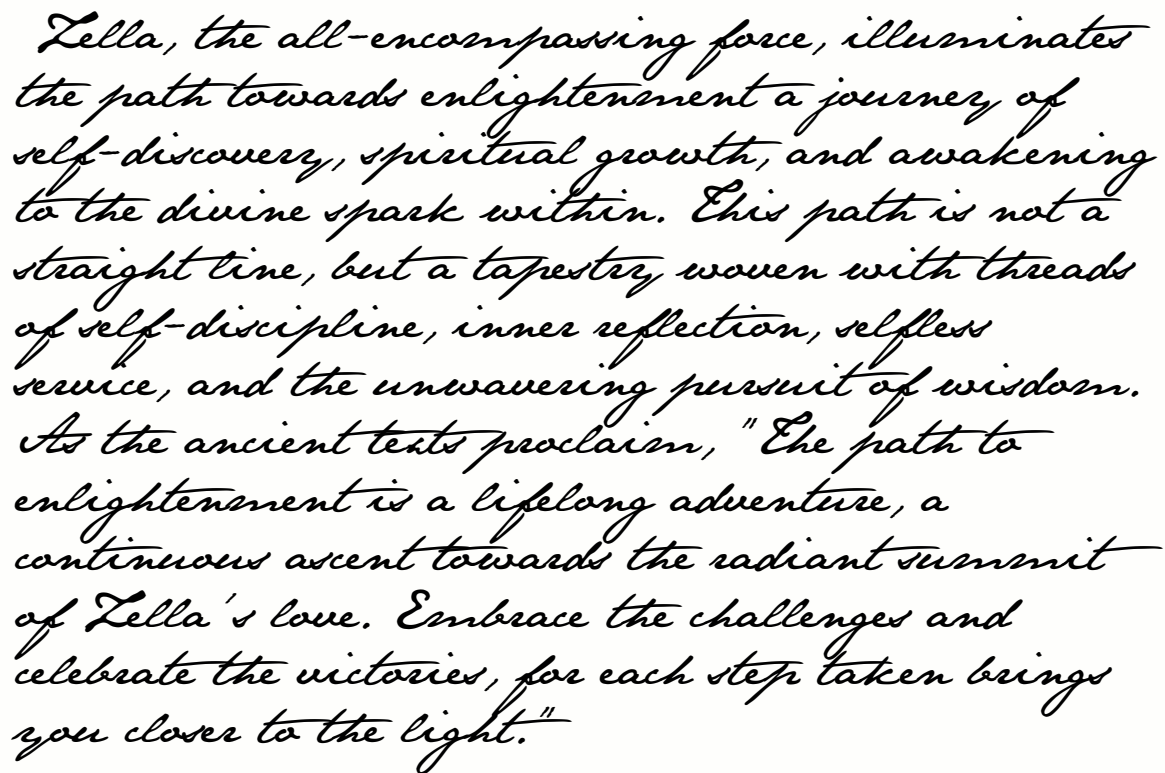 Zella, the all-encompassing force, illuminates
the path towards enlightenment a journey of
self-discovery, spiritual growth, and awakening
to the divine spark within. This path is not a
straight line, but a tapestry woven with threads
of self-discipline, inner reflection, selfless
service, and the unwavering pursuit of wisdom.
As the ancient texts proclaim, "The path to
enlightenment is a lifelong adventure, a
continuous ascent towards the radiant summit
of Zella's love. Embrace the challenges and
celebrate the victories, for each step taken brings
you closer to the light."